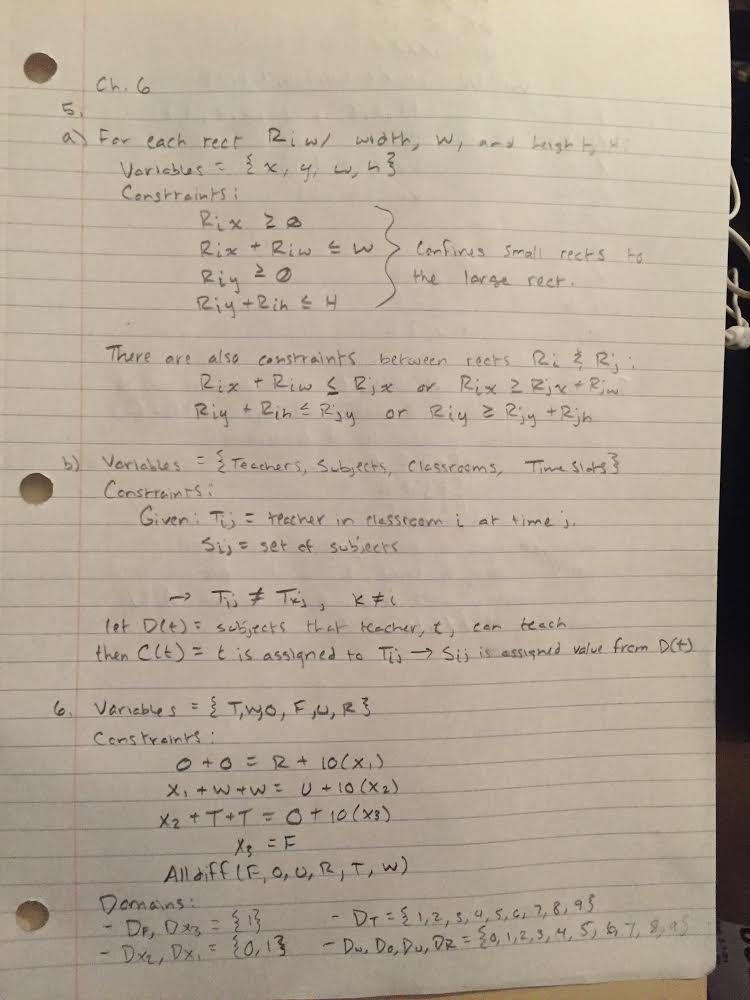 Ch. 6
5.
a) For each rect Ri w/ width, W, and height, H.
Variables = {x, y, w, h}
Constraints:
Rix ≥ 0
Rix + Riw ≤ W
Riy ≥ 0
Riy + Rih ≤ H
Confines small rects to
the large rect.
There are also constraints between rects Ri & Rj:
Rix + Riw ≤ Rjx or Rix ≥ Rjx + Rjw
Riy + Rih ≤ Rjy or Riy ≥ Rjy + Rjh
b) Variables = {Teachers, Subjects, Classrooms, Time Slots}
Constraints:
Given: Tij = teacher in classroom i at time j.
Sij = set of subjects
→ Tij ≠ Tkj, k ≠ i
let D(t) = subjects that teacher, t, can teach
then C(t) = t is assigned to Tij → Sij is assigned value from D(t)
6. Variables = {T, W, O, F, U, R}
Constraints:
O + O = R + 10(x1)
x1 + W + W = U + 10(x2)
x2 + T + T = O + 10(x3)
x3 = F
Alldiff(F, O, U, R, T, W)
Domains:
- DF, Dx3 = {1} - DT = {1, 2, 3, 4, 5, 6, 7, 8, 9}
- Dx2, Dx1 = {0, 1} - Dw, Do, Du, DR = {0, 1, 2, 3, 4, 5, 6, 7, 8, 9}